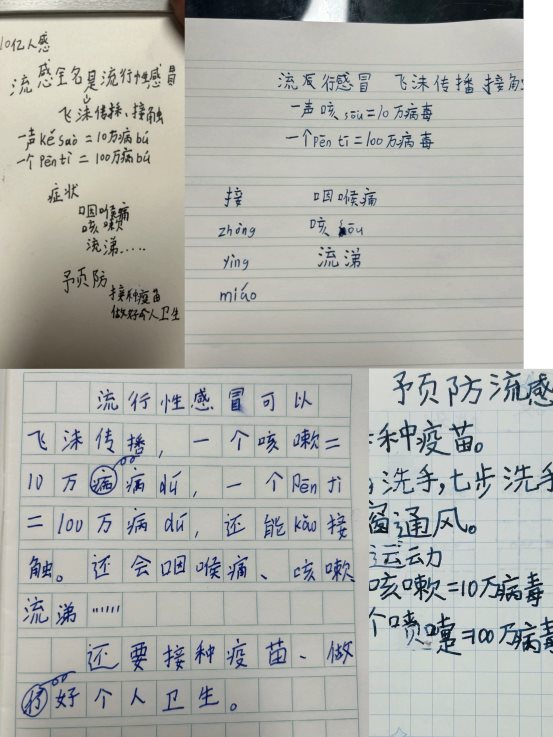 10亿人感
流感全名是流行性感冒
飞沫传播、接触
一声ké sào=10万病bú
一个Pēn tì=100万病bú
症状
咽喉痛
咳嗽
流涕....
预防
接种疫苗
做好个人卫生
流反行感冒 飞沫传播 接触
一声咳sōu=10万病毒
一个Pēn tì=100万病毒
接 咽喉痛
zhòng 咳sōu
yìng 流涕
miáo
流行性感冒可以
飞沫传播,一个咳嗽=
10万病病dú,一个Pēn tì
=100万病dú,还能kào接
触。还会咽喉痛、咳嗽
流涕......
还要接种疫苗、做
好个人卫生。
预防流感
种疫苗。
洗手,七步洗手
窗通风。
运动
咳嗽=10万病毒
个喷嚏=100万病毒